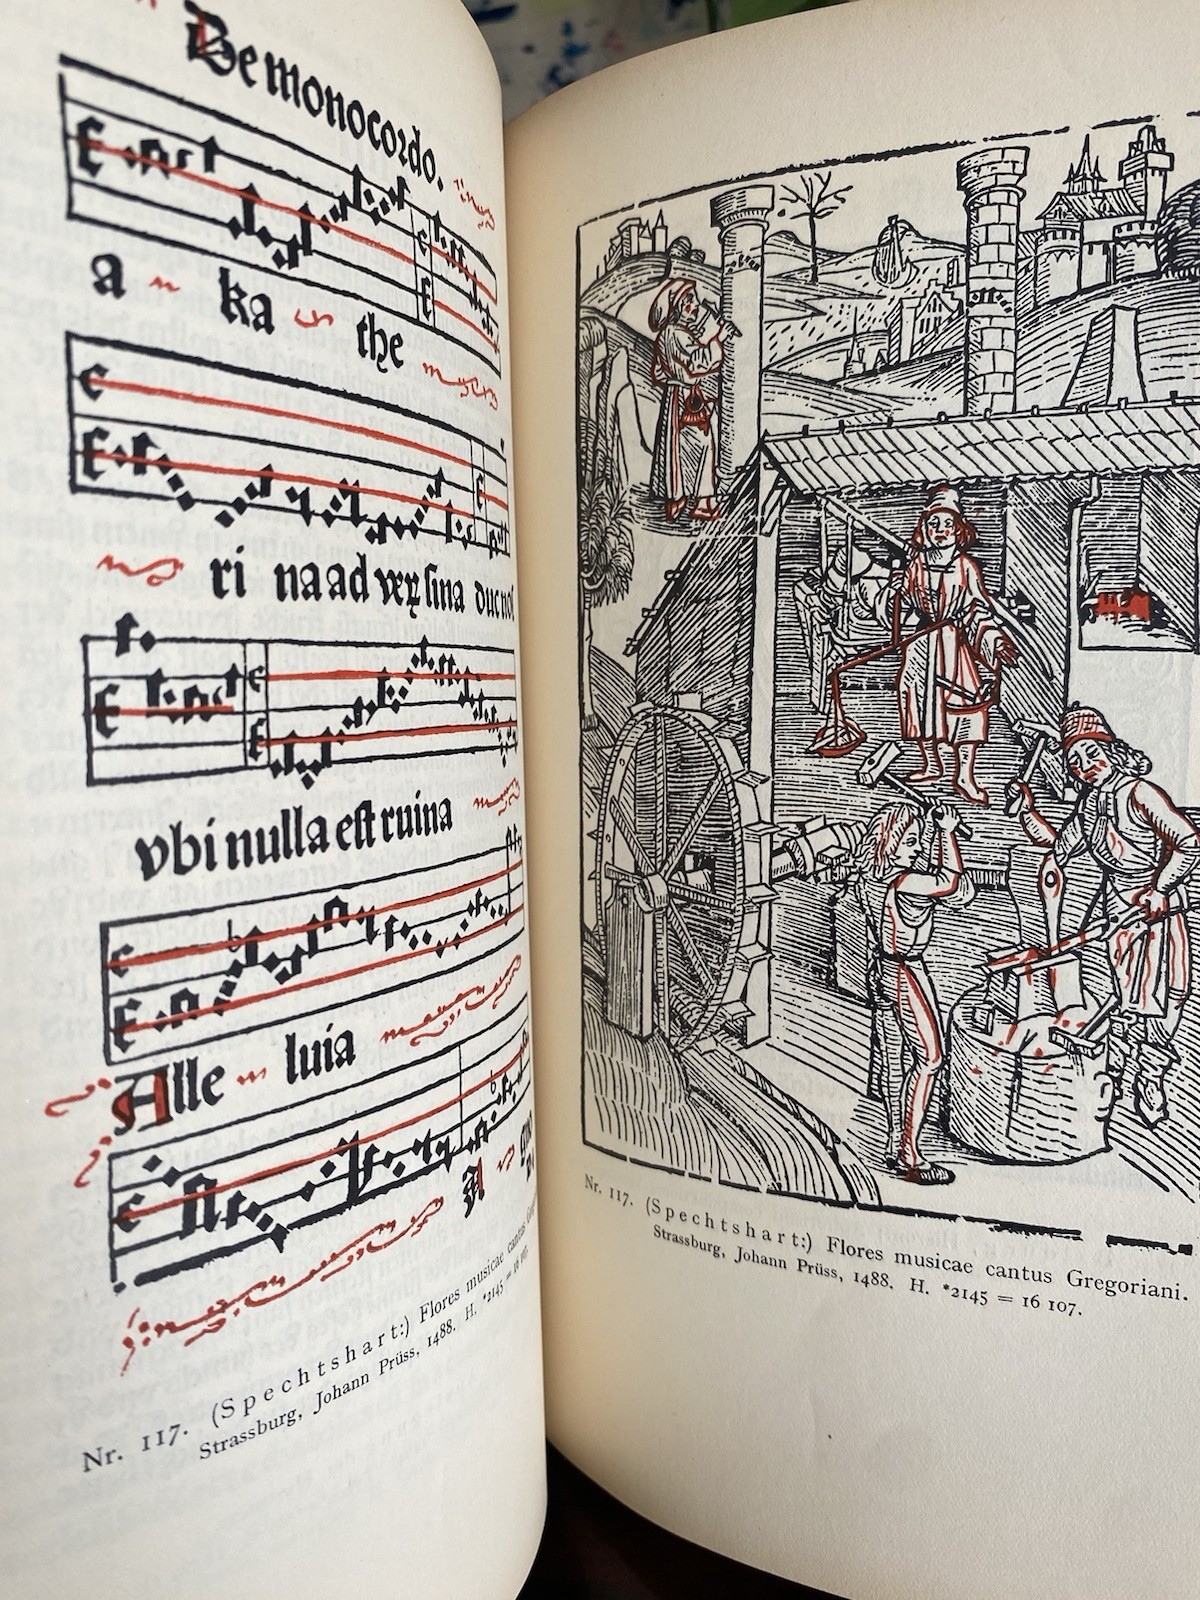 De monocordo.
a ka the
ri na ad vex sina duc nos
vbi nulla est ruina
Alle luia
A
Nr. 117. (Spechtshart:) Flores musicae cantus
Strassburg, Johann Prüss, 1488. H. *2145 = 16 107.
Nr. 117. (Spechtshart:) Flores musicae cantus Gregoriani.
Strassburg, Johann Prüss, 1488. H. *2145 = 16 107.